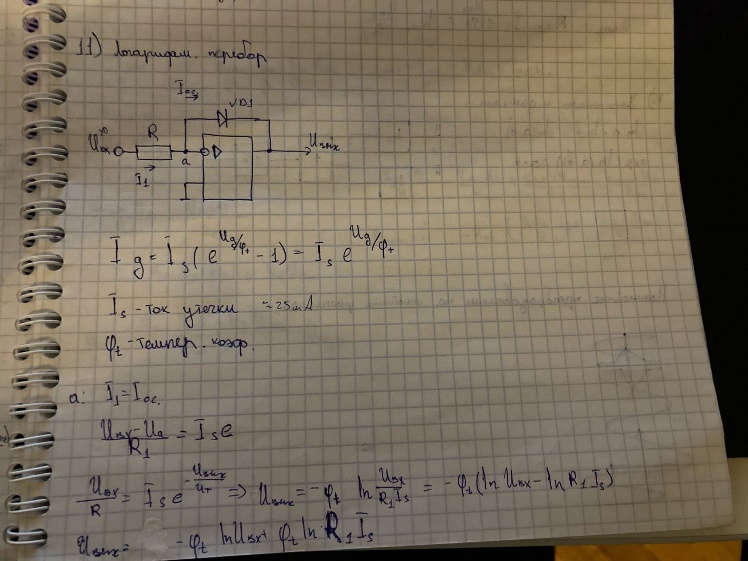 11) Логарифм. перебор
Iос
VD1
Uвх R Uвых
a
I1
Iд = Is(e^Uд/φt - 1) = Is e^Uд/φt
Is - ток утечки ≈25mA
φt - темпер. коэф.
a: I1 = Iос.
Uвх-Uа/R1 = Is e
Uвх/R = Is e^-Uвых/Uт ⇒ Uвых = -φt ln Uвх/R1Is = -φt(ln Uвх - ln R1Is)
Uвых = -φt lnUвх+ φt ln R1 Is